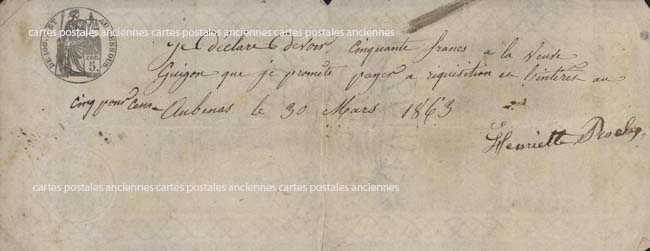 DE 100F. ET AU DESSOUS.
5.
Je déclare devoir cinquante francs a la veuve
Guigon que je promets payer a riquisition et l'intérêt au
cinq pour cent
Aubenas le 30 Mars 1863
Henriette
cartes postales anciennes cartes postales anciennes
cartes postales anciennes cartes postales anciennes cartes postales anciennes